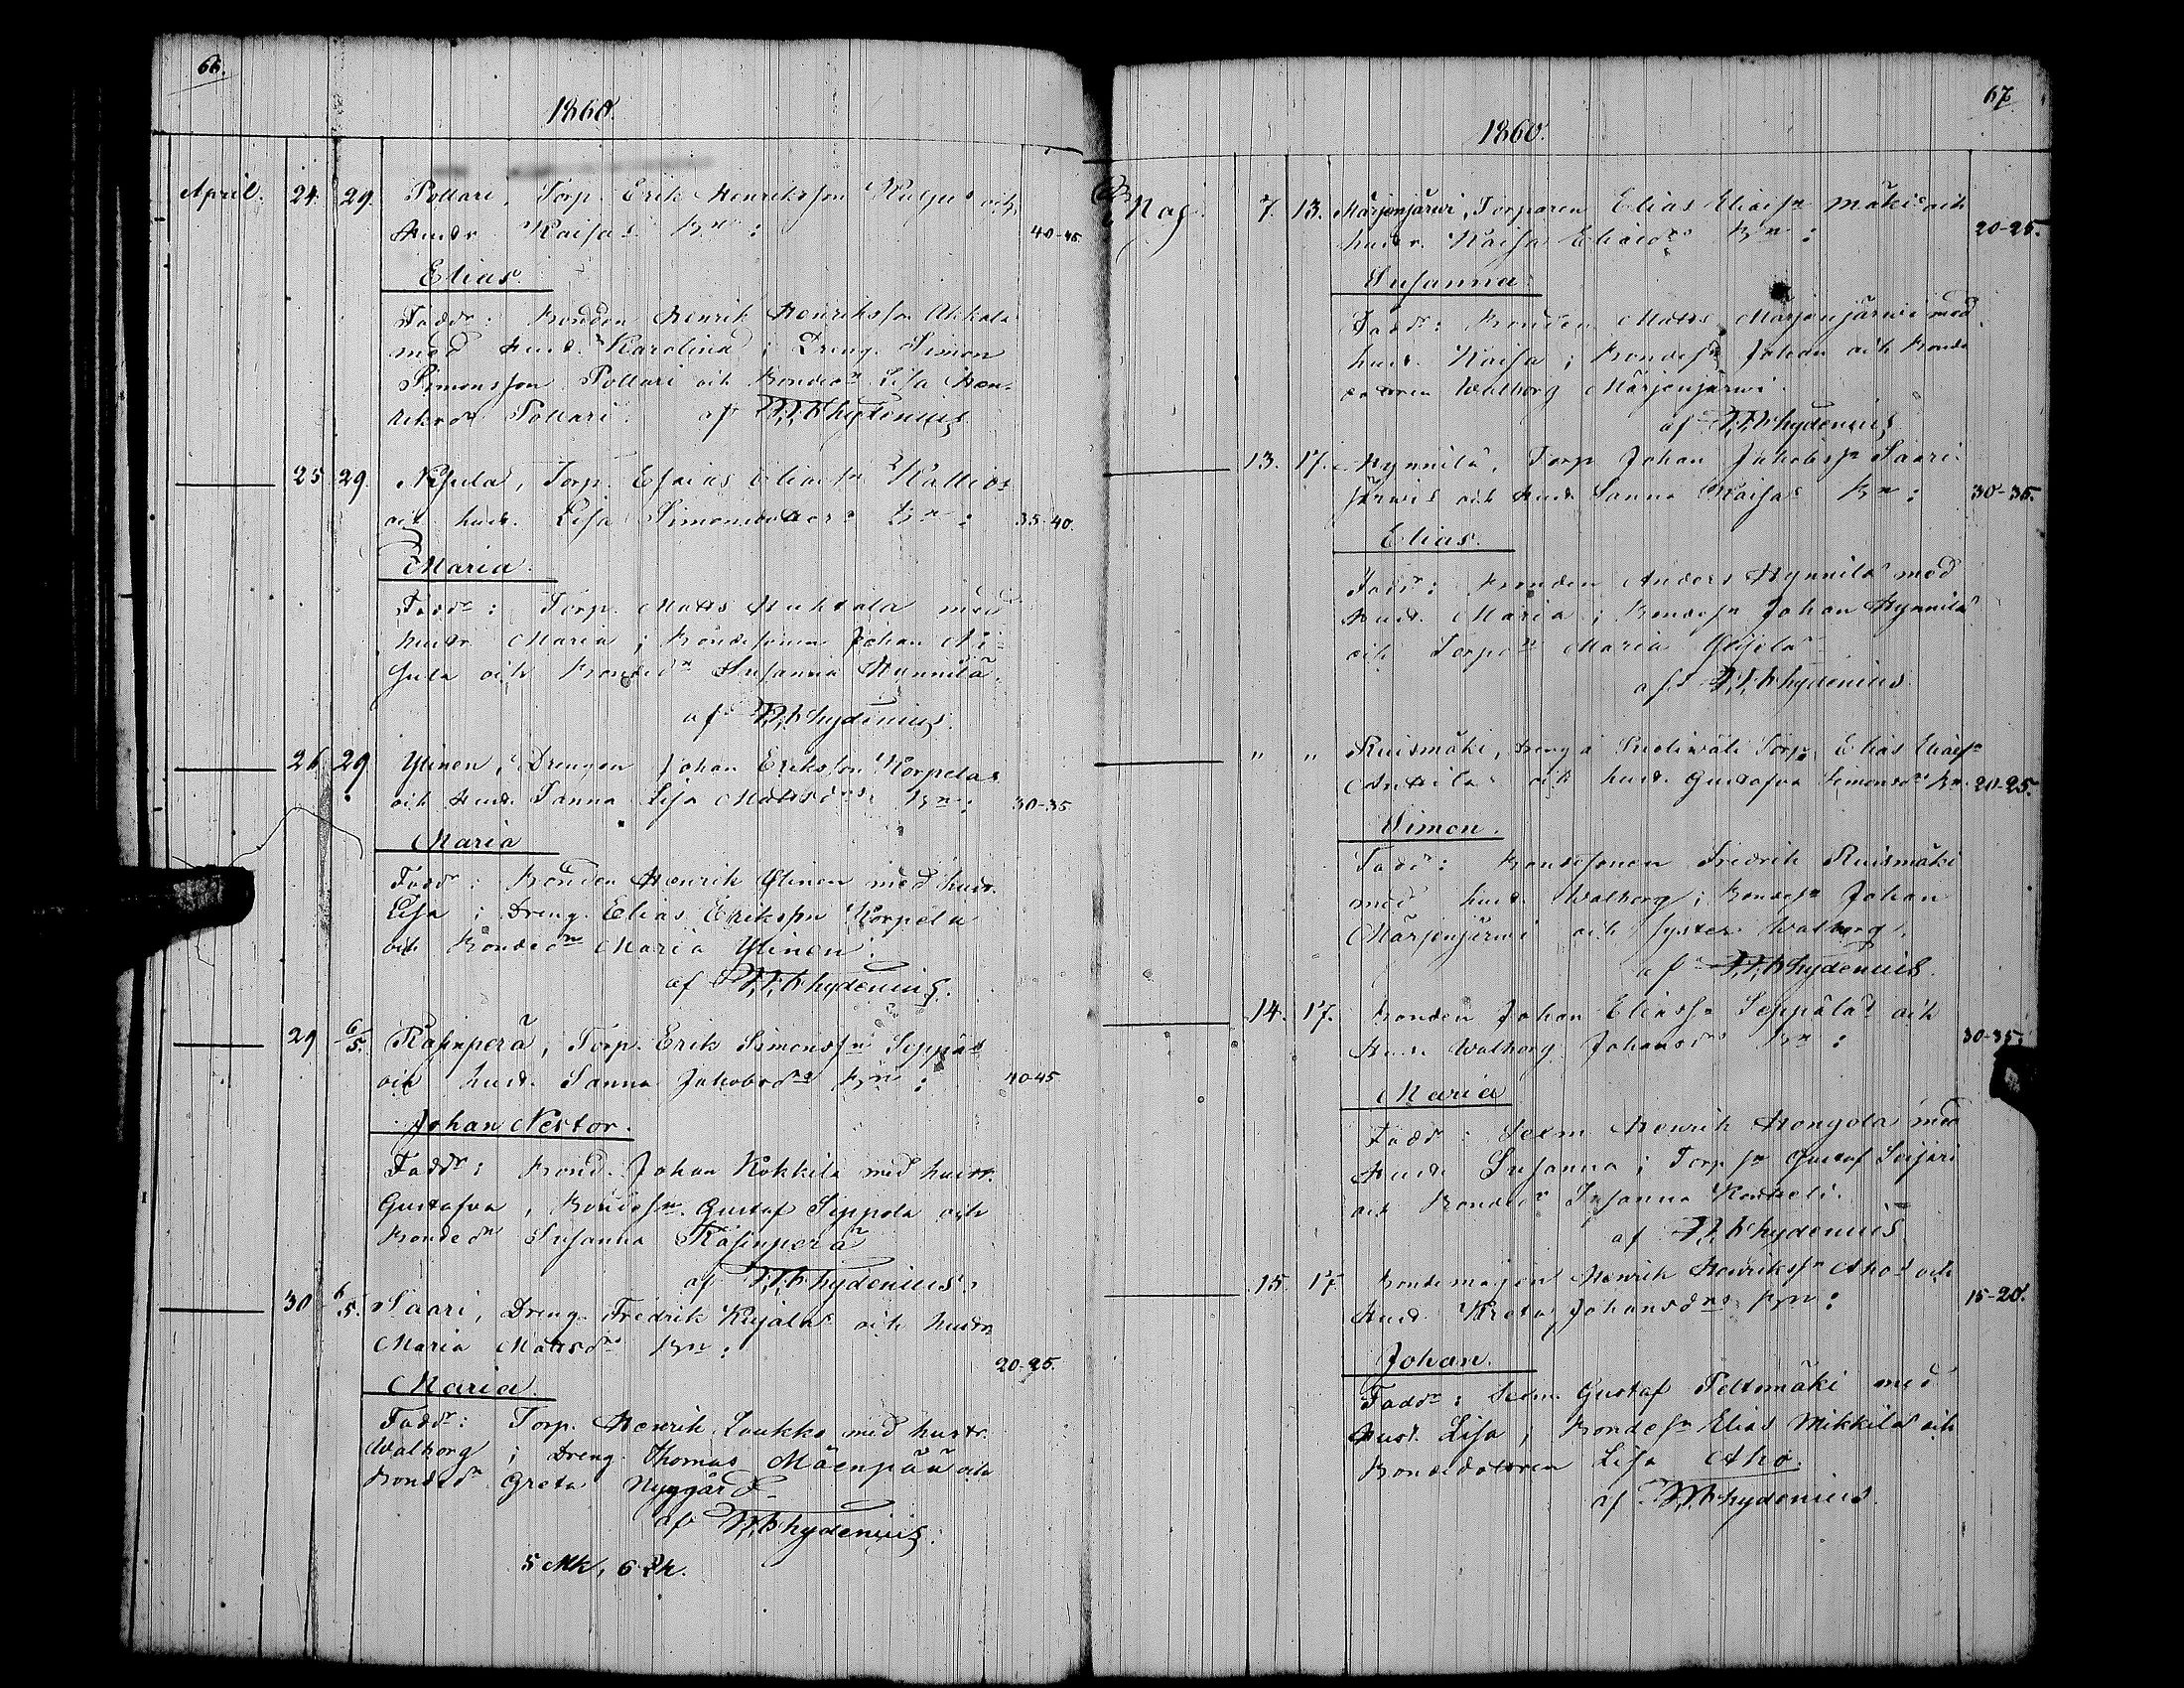 66.
1860.
April. 24. 29. Pollari, Torp. Erik Henriksson och
Hustr Kaisas Bn: 40-45.
Elias.
Faddr: Bonden Henrik Henriksson Akkala
med Hust. Karolina; Dreng. Simon
Simonsson Pollari och Bondedn Lisa Hen-
riksdr Pollari. af Hydenius.
25 29. Torp. Esaias Eliasn Kallios
och hust. Lisa Simonsdotters Bn: 35-40.
Maria.
Faddr: Torp. Matts Huhtala med
Hustr Maria; Bondesonen Johan Ni-
sula och Bondedn Susanna Hynnilä.
af Hydenius.
26 29 Ylinen, Drengen Johan Eriksson Korpelas
och Hust. Sanna Lisa Mattsdrs Bn: 30-35
Maria
Faddr: Bonden Henrik Ylinen med hust.
Lisa; Dreng. Elias Eriksson Korpela
och Bondedn Maria Ylinen.
af Hydenius.
29 6/5. Torp. Erik Simonssn Seppäs
och hust. Sanna Jakobsdrs Bn: 40-45
Johan Nestor.
Faddr: Bond. Johan Kokkila med hustr.
Gustafva, Bondesn. Gustaf Seppola och
Bondedn Susanna
af Hydenius.
30 6/5. Saari, Dreng. Fredrik Kujalas och hustr
Maria Mattsdrs Bn: 20-25.
Maria.
Faddr: Torp. Henrik Loukko med hustr.
Walborg; Dreng. Thomas Mäenpää och
Bondedn Greta Nygård
af Hydenius.
5 Mk, 6 Qk.
67
1860.
Maj. 7. 13. Märjenjärwi, Torparen Elias Eliasn Mäkis och
hustr. Kaisa Eliasdrs Bn: 20-25.
Susanna.
Faddr: Bonden Matts Märjenjärwi med
hust. Kaisa; Bondesn Johan och Bonde
dottren Walborg Märjenjärwi.
af Hydenius
13. 17. Hynnilä, Torp Johan Jakobsn Saari-
järwis och Hust. Sanna Kaisas Bn: 30-35.
Elias.
Faddr: Bonden Anders Hynnilä med
Hust. Maria; Bondesn Johan Hynnilä
och Torpdn Maria
af Hydenius.
" " Ruismäki, Dreng å Torp, Elias Eliasn
Anttilas och hust. Gustafva Simonsdrs Bn. 20-25.
Simon.
Faddr: Bondesonen Fredrik Ruismäki
med hust. Walborg; Bondesn Johan
Märjenjärwi och syster Walborg.
af Hydenius.
14. 17. Bonden Johan Eliassn Seppäläs och
Hust. Walborg Johansdrs Bn: 30-35.
Maria
Faddr: Sexm Henrik Hongola med
Hust. Susanna; Torpsn Gustaf
och Bondedr Susanna
af Hydenius
15. 17 Bondemågen Henrik Henrikssn Ahos och
Hust. Kreta Johansdrs Bn: 15-20.
Johan.
Faddr: Sexm. Gustaf Peltomäki med
Hust. Lisa, Bondesn Elias Mikkilä och
Bondedottren Lisa Aho.
af Hydenius.